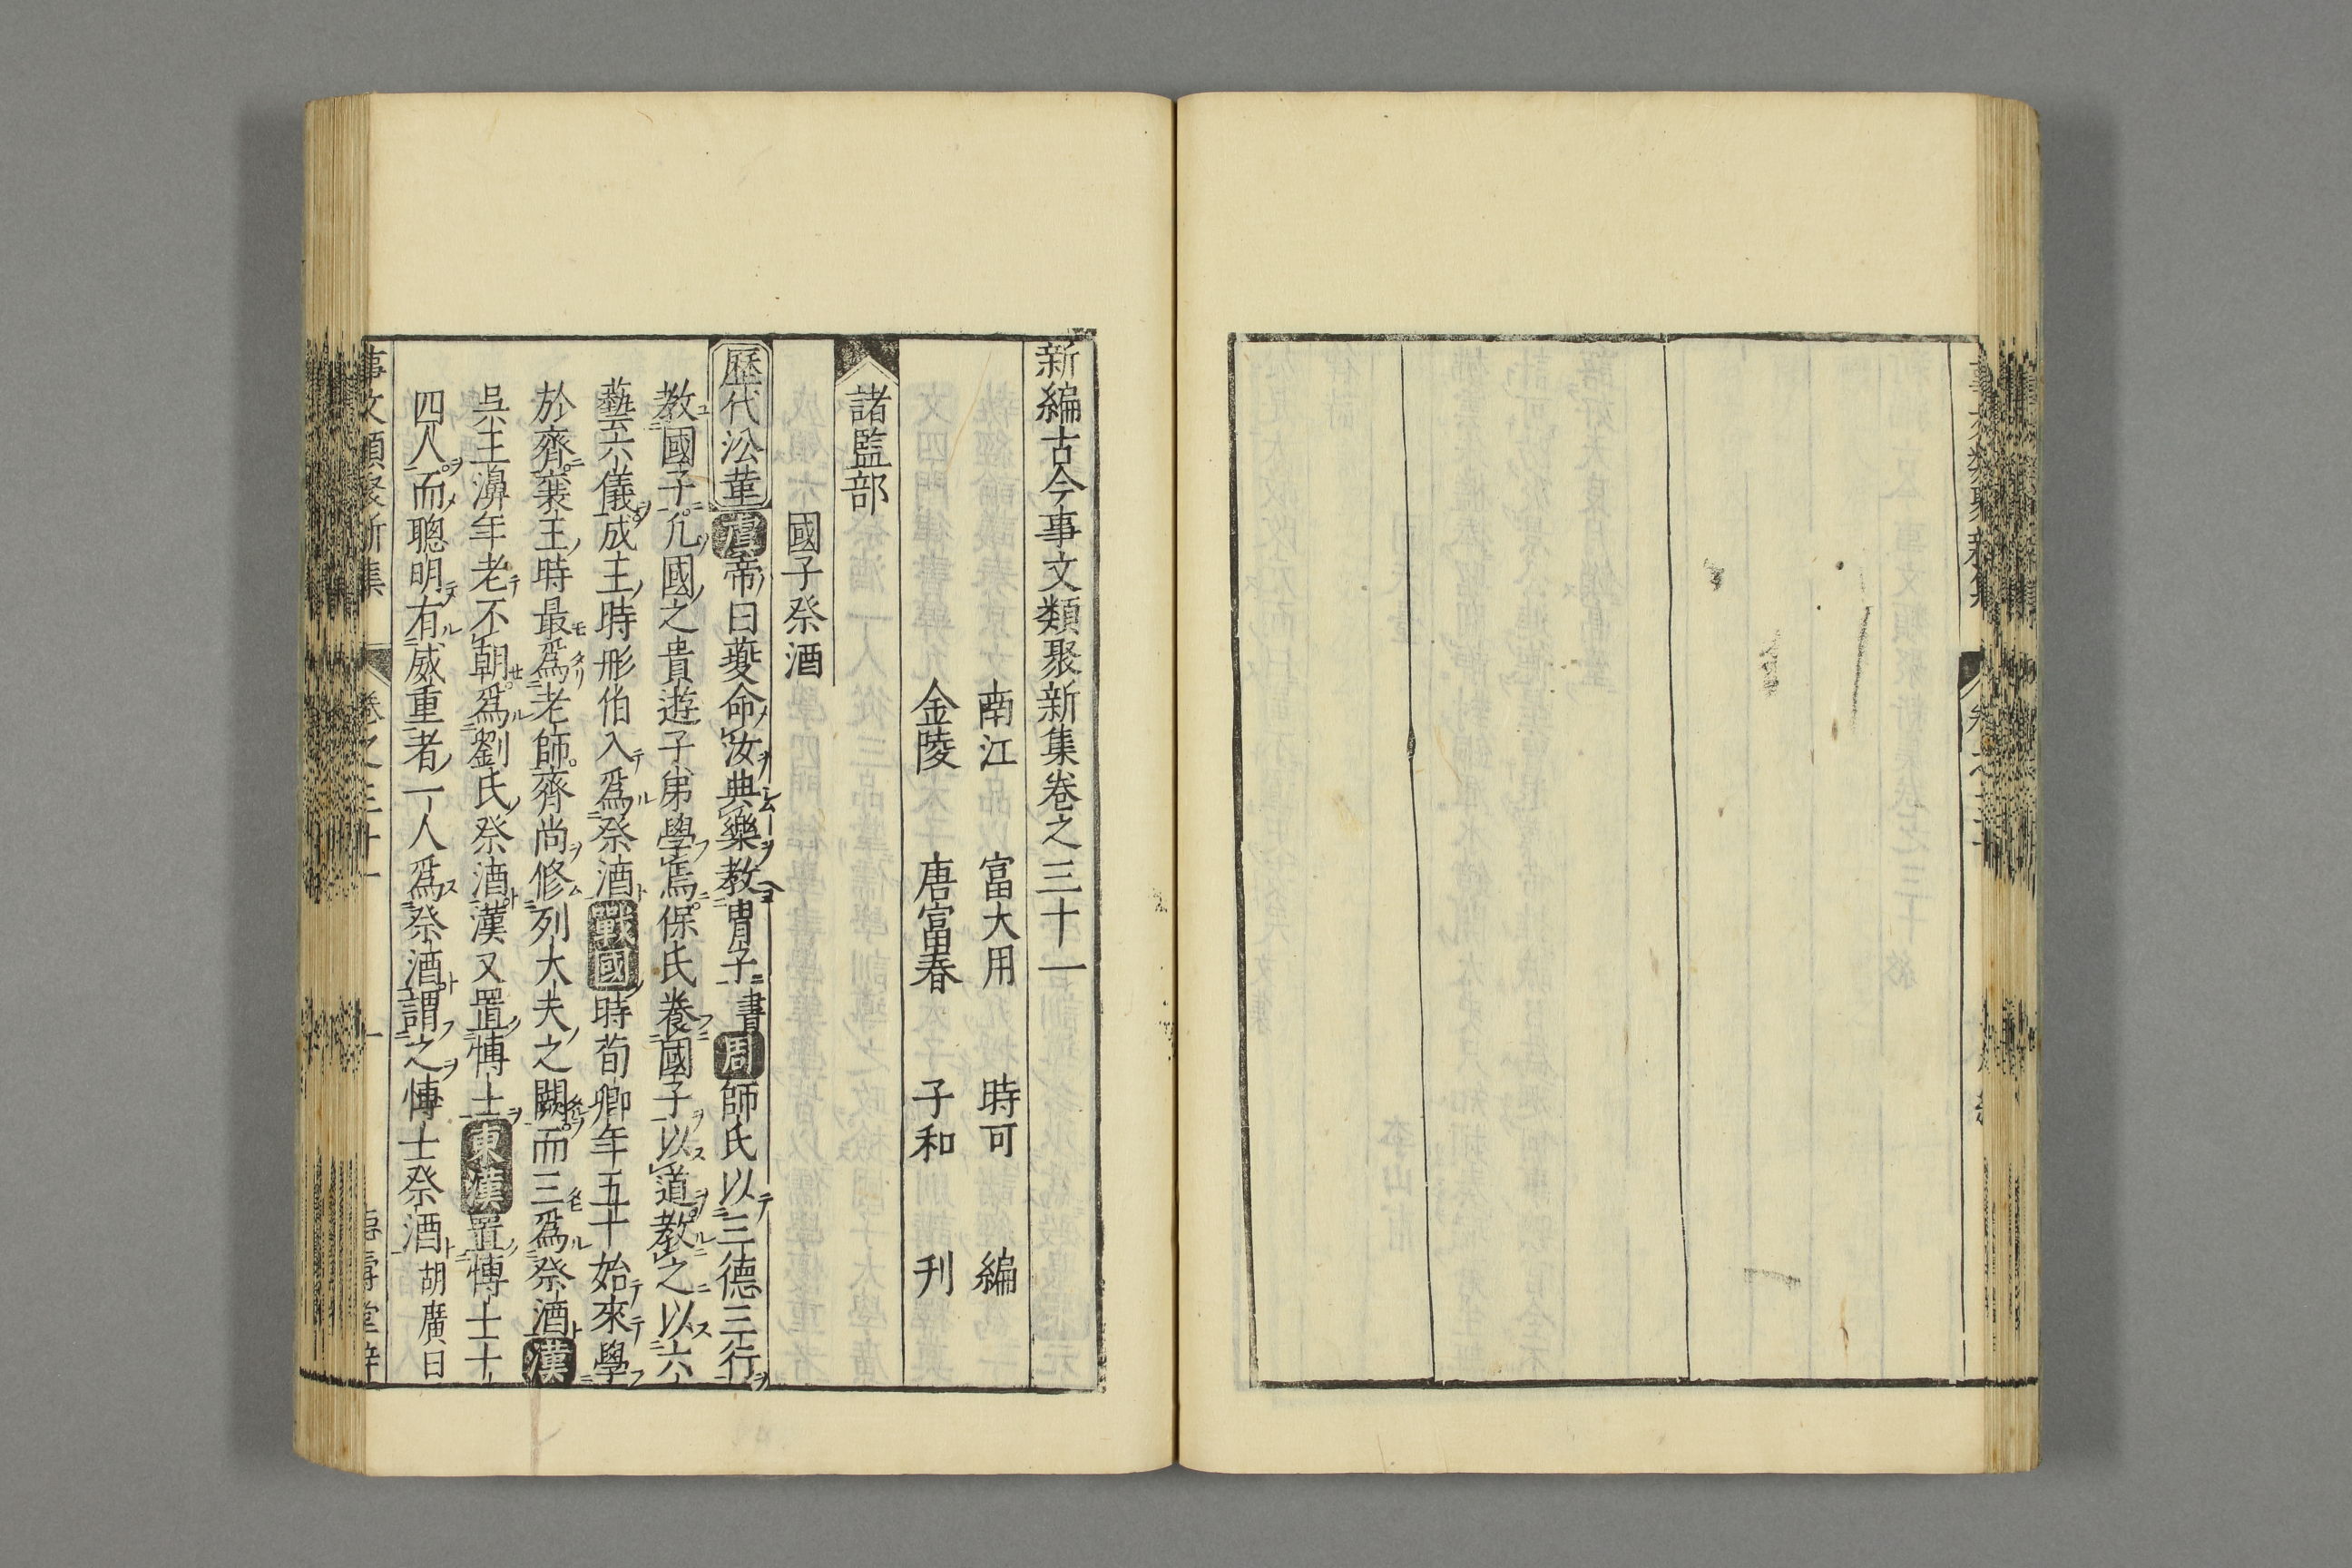 新編古今事文類聚新集卷之三十一
南江　富大用　時可　編
金陵　唐富春　子和　刊
諸監部
國子祭酒
歷代沿革虞帝曰夔命汝典樂教冑子書周師氏以三德三行
教國子凡國之貴遊子弟學焉保氏養國子以道教之以六
藝六儀成王時彤伯入爲祭酒戰國時荀卿年五十始來學
於齊襄王時最爲老師齊尚修列大夫之闕而三爲祭酒漢
吳王濞年老不朝爲劉氏祭酒漢又置博士東漢置博士十
四人而聰明有威重者一人爲祭酒謂之博士祭酒胡廣曰
事文類聚新集　卷之三十一　一